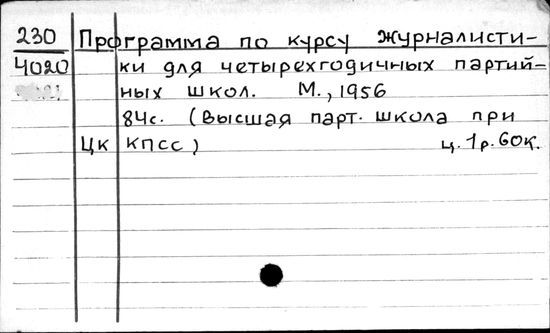 230 Программа по курсу журналисти-
4020 ки для четырехгодичных партий-
ных школ. М., 1956
84с. (Высшая парт. школа при
ЦК КПСС) ц. 1р. 60к.